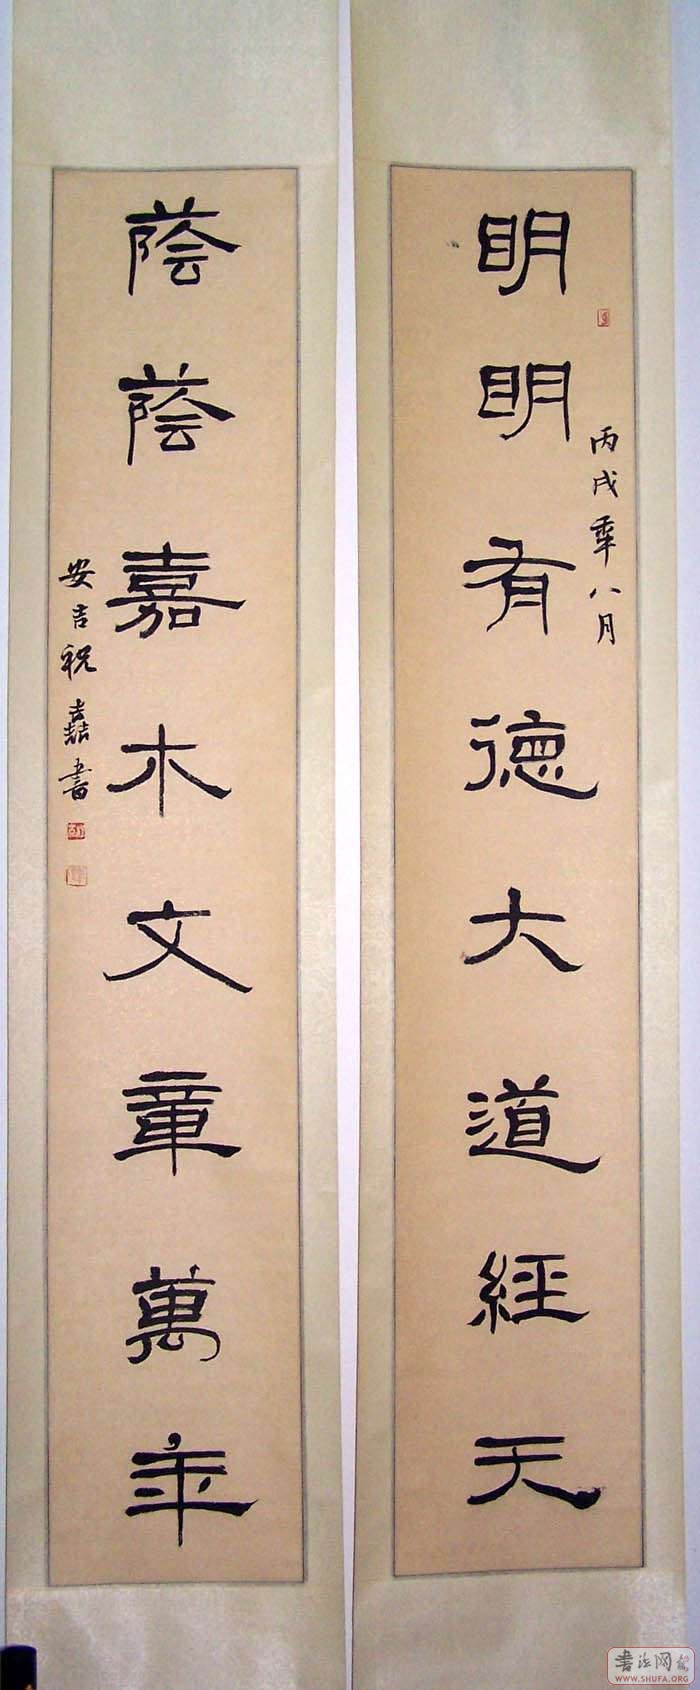 明明有德大道經天
丙戌年八月
蔭蔭嘉木文章萬年
安吉祝嚞書
書法网
WWW.SHUFA.ORG